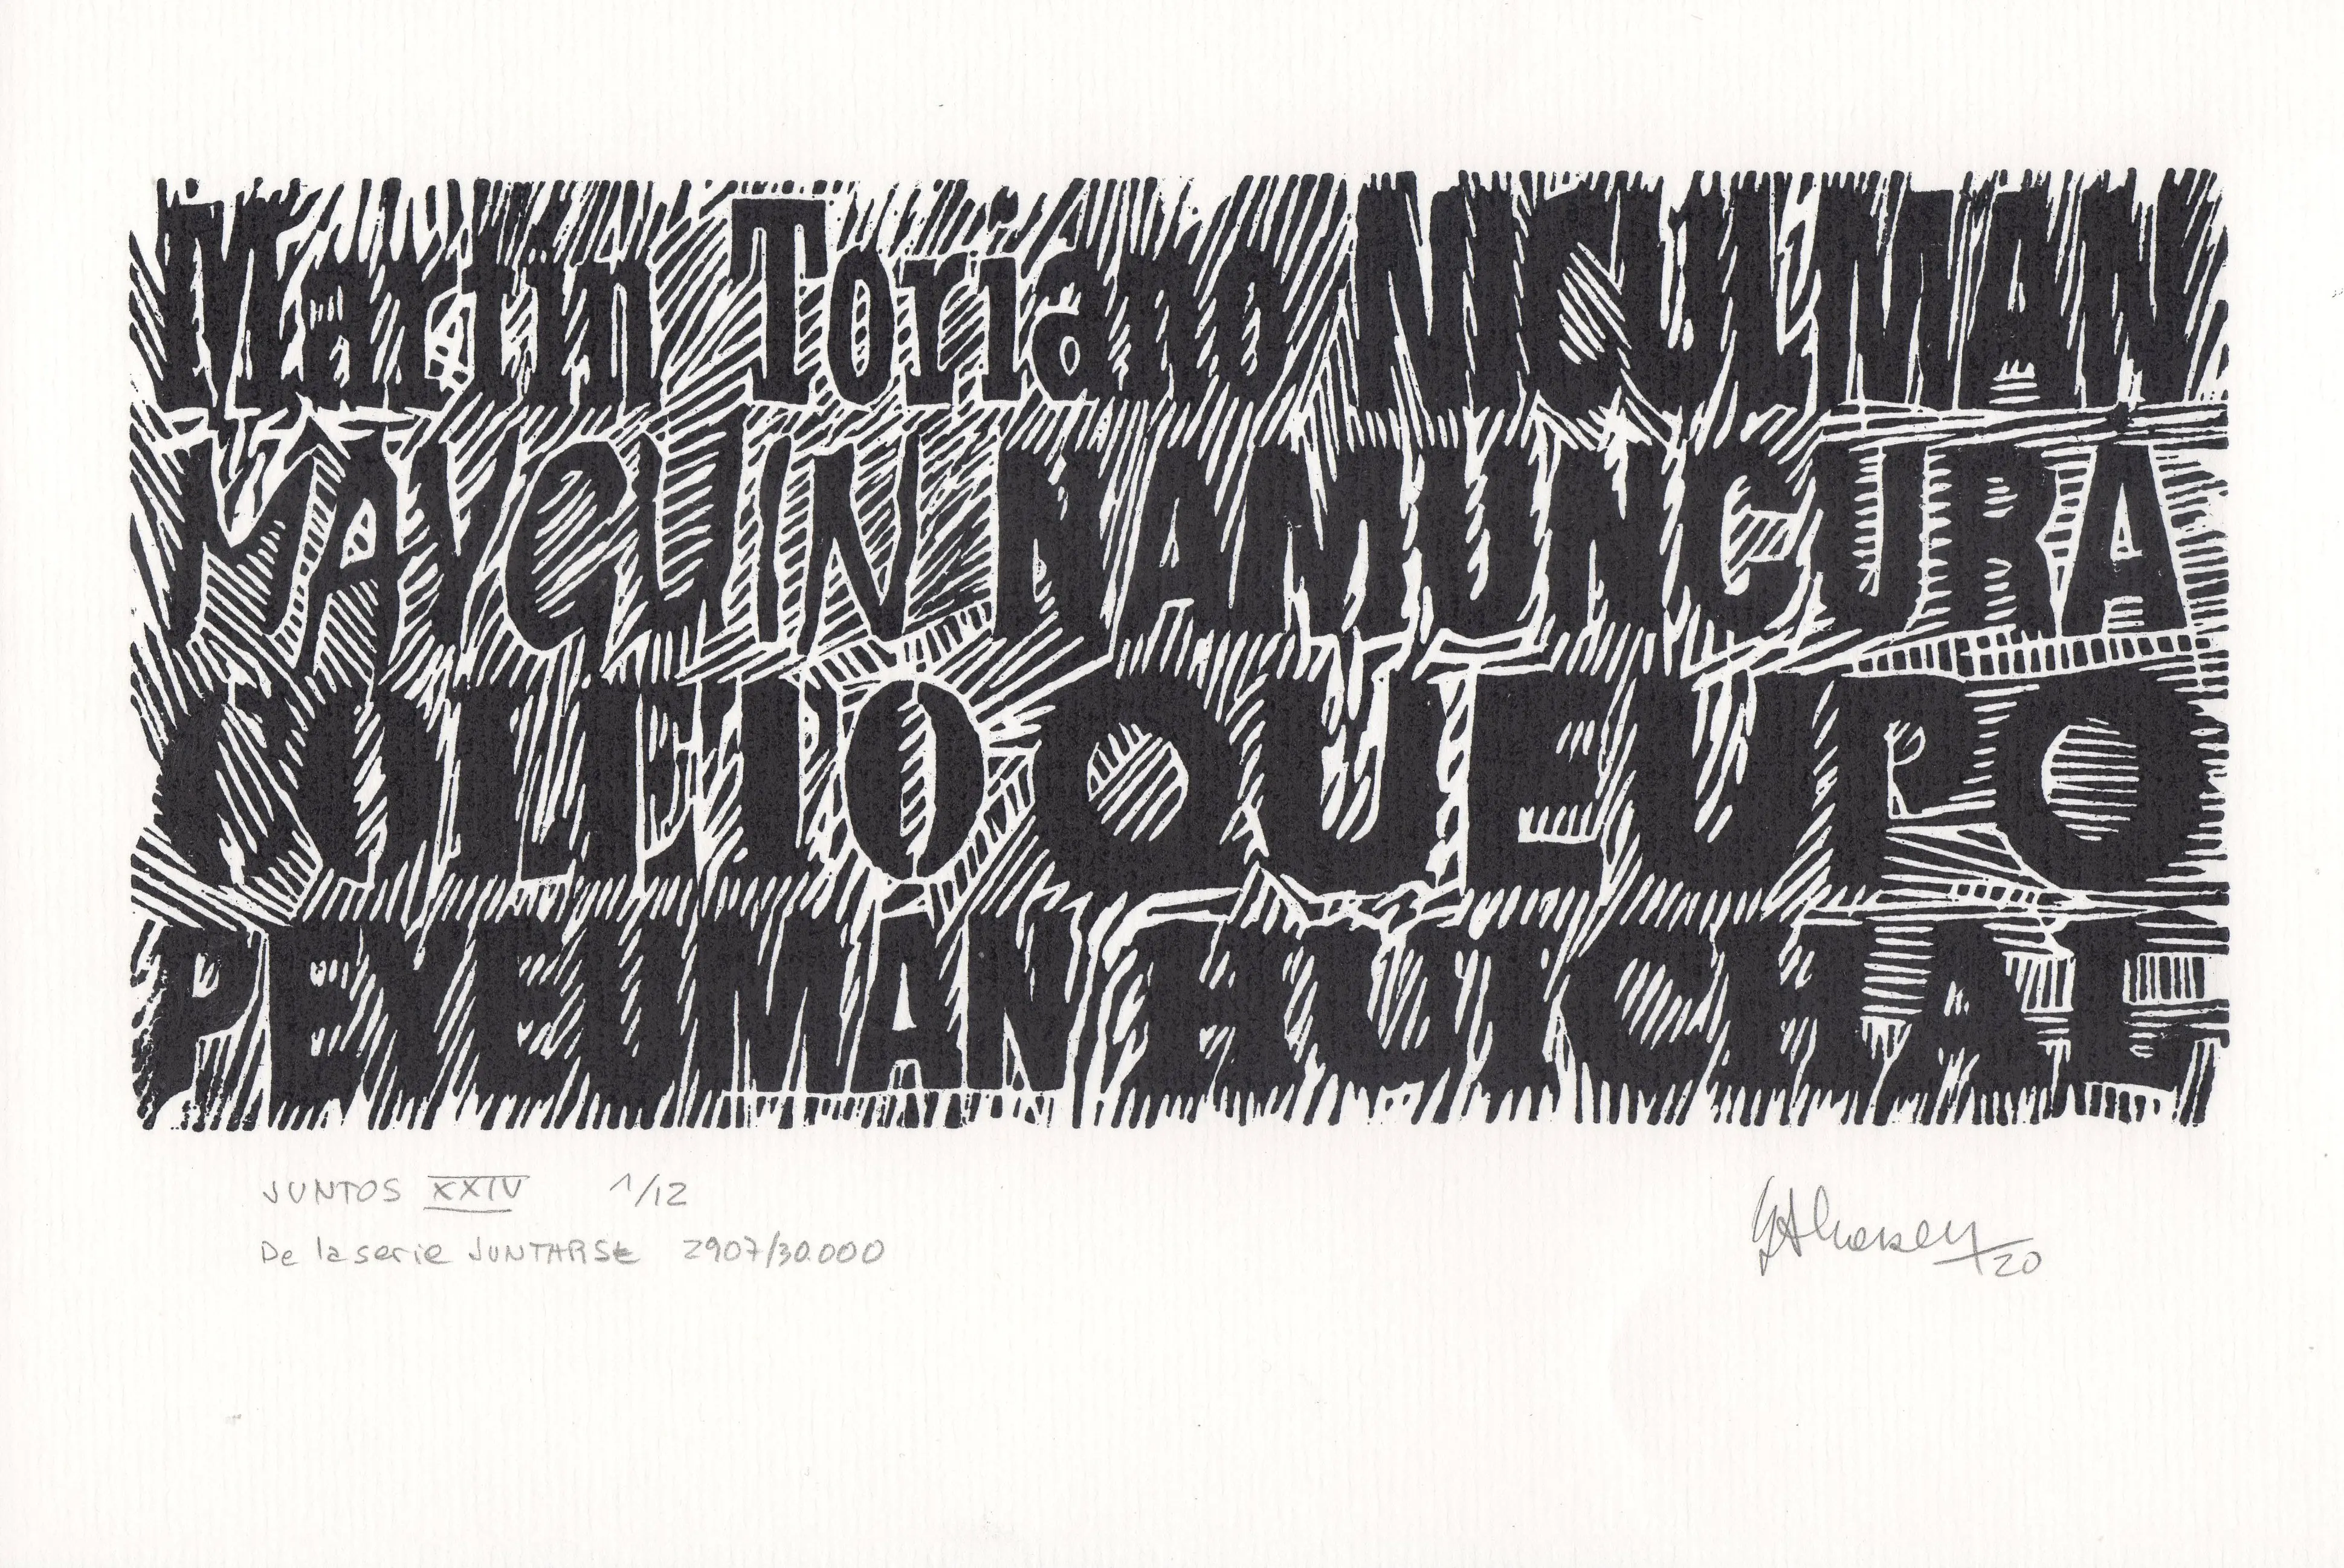 Martin Toriano NICULMAN
MAYCUIN NAMUNCURA
COLLETO QUEUPO
PEYEUMÁN HUICHAL
JUNTOS XXIV 1/12
De la serie JUNTARSE 2907/30.000
20